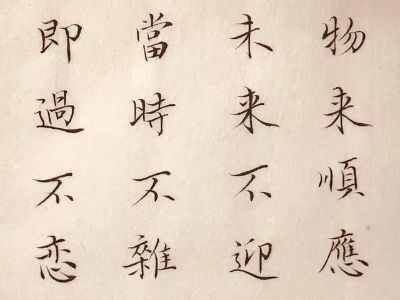 物来順應
未来不迎
當時不雜
即過不恋